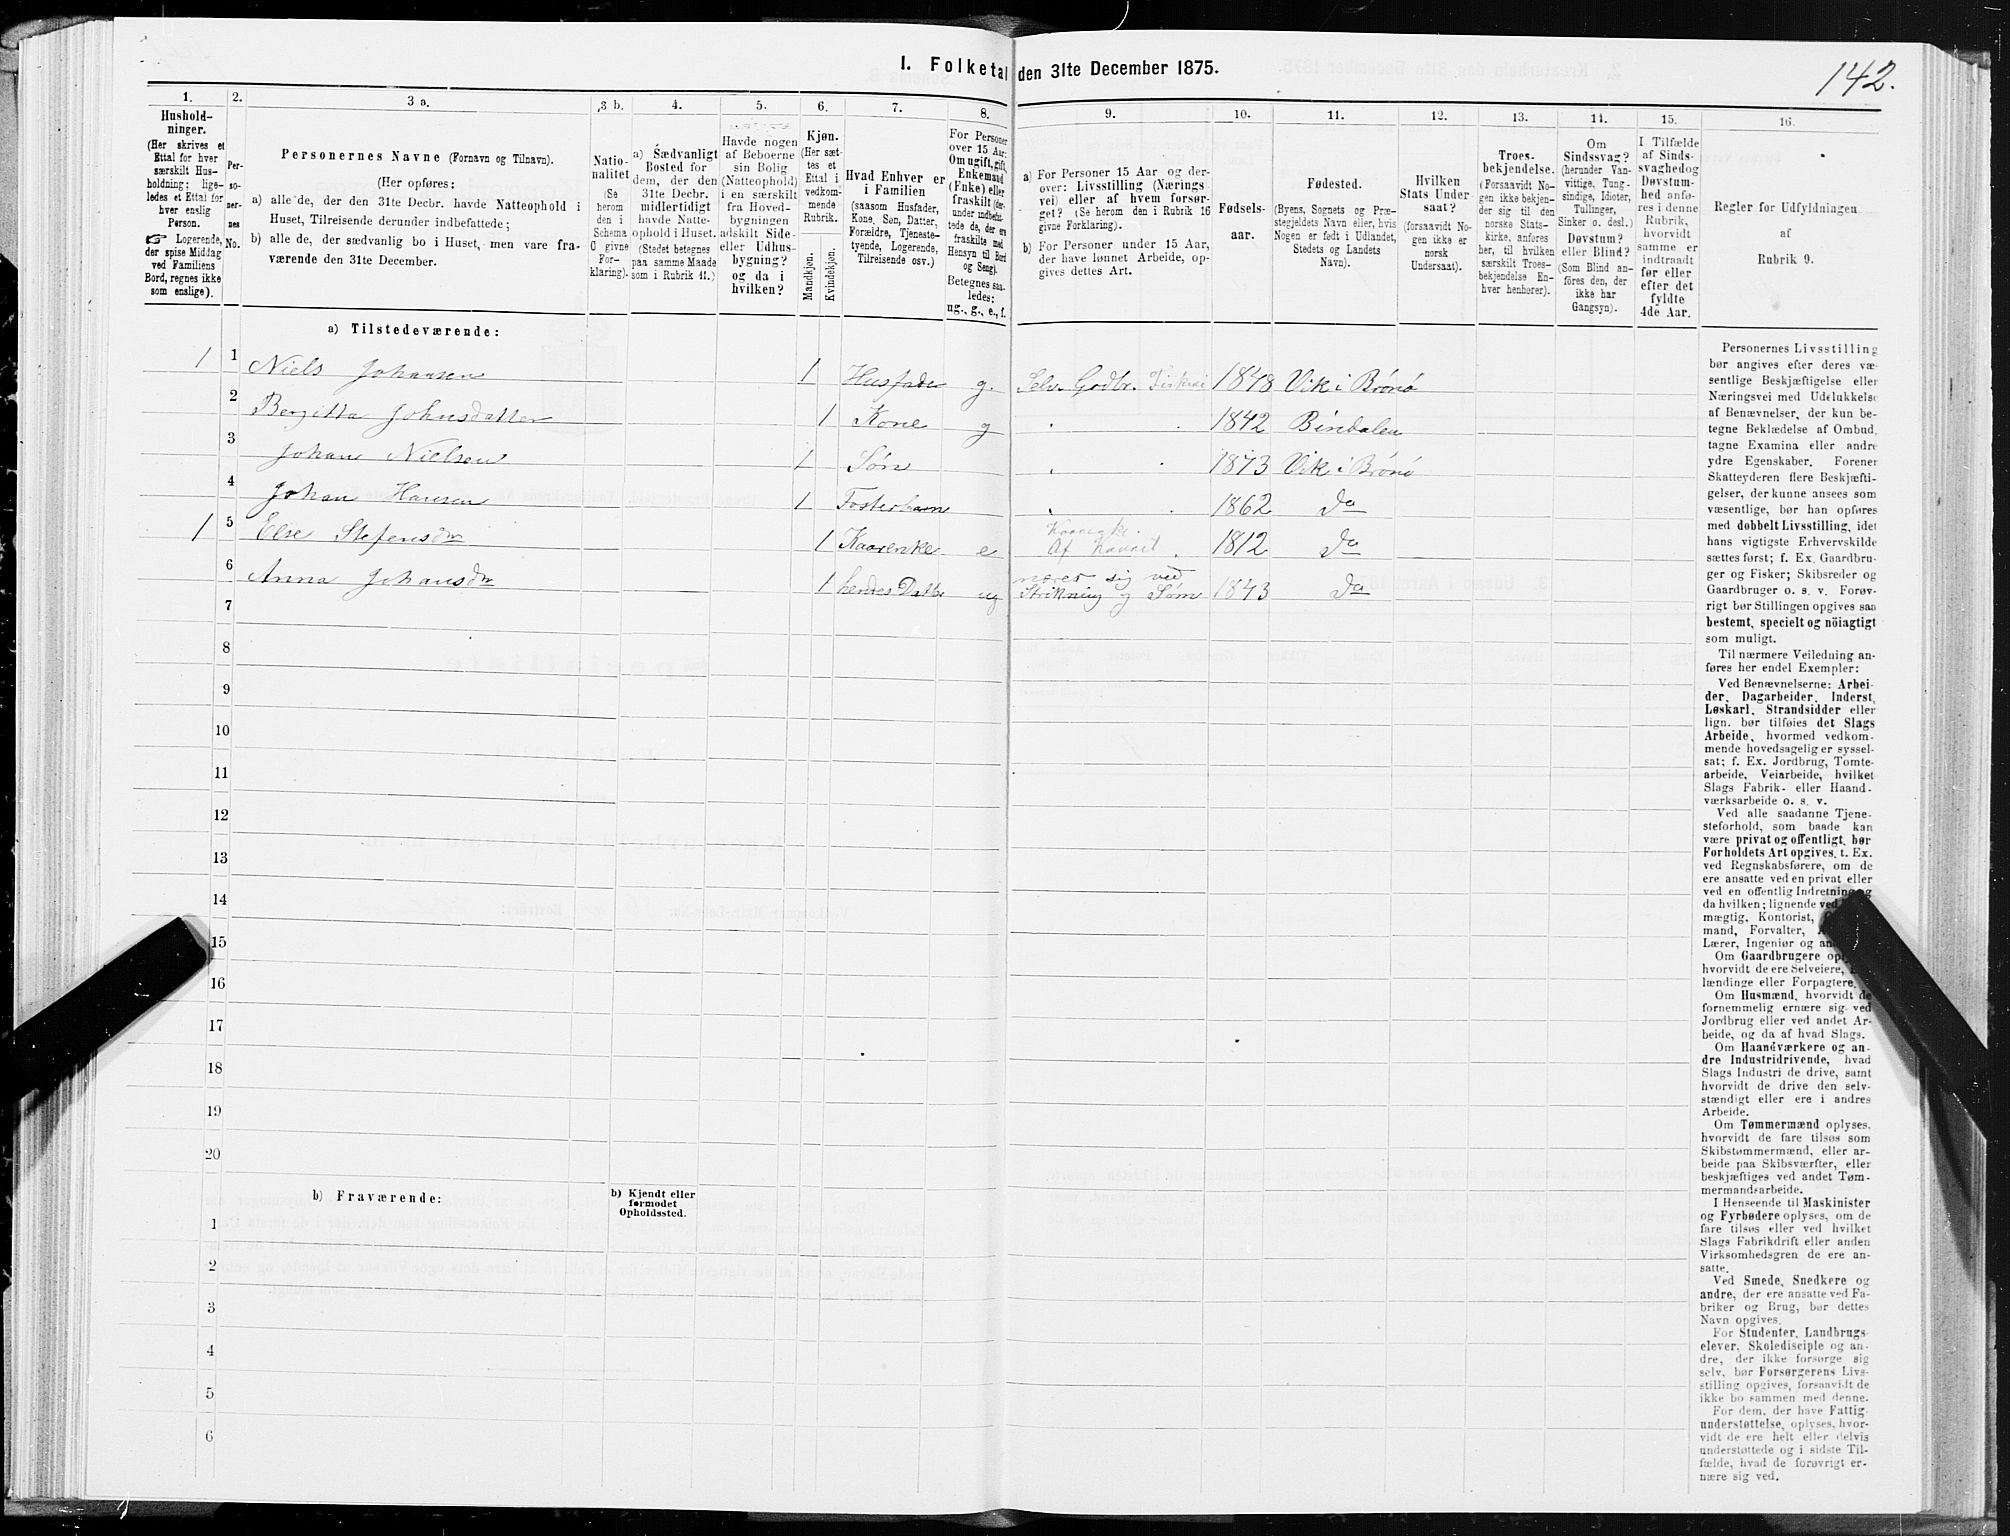 I. Folketal den 31te December 1875.
142.
1.
Hushold-
ninger.
(Her skrives et
Ettal for hver
særskilt Hus-
holdning; lige-
ledes et Ettal for
hver enslig
Person.
☞ Logerende,
der spise Middag
ved Familiens
Bord, regnes ikke
som enslige).
2.
Per-
so-
ner-
nes
No.
3 a.
Personernes Navne (Fornavn og Tilnavn).
(Her opføres:
a) alle de, der den 31te Decbr. havde Natteophold i
Huset, Tilreisende derunder indbefattede;
b) alle de, der sædvanlig bo i Huset, men vare fra-
værende den 31te December.
3 b.
Natio-
nalitet
(Se
herom
den i
Schema
C givne
For-
klaring).
4.
a) Sædvanligt
Bosted for
dem, der den
31te Decbr.
midlertidigt
havde Natte-
ophold i Huset.
(Stedet betegnes
paa samme Maade
som i Rubrik 11.)
5.
Havde nogen
af Beboerne
sin Bolig
(Natteophold)
i en særskilt
fra Hoved-
bygningen
adskilt Side-
eller Udhus-
bygning?
og da i
hvilken?
6.
Kjøn.
(Her sæt-
tes et
Ettal i
vedkom-
mende
Rubrik.
Mandkjøn.
Kvindekjøn.
7.
Hvad Enhver er
i Familien
(saasom Husfader,
Kone, Søn, Datter,
Forældre, Tjeneste-
tyende, Logerende,
Tilreisende osv.)
8.
For Personer
over 15 Aar:
Om ugift, gift,
Enkemand
(Enke) eller
fraskilt (der-
under indbefat-
tede de, der ere
fraskilte med
Hensyn til Bord
og Seng).
Betegnes saa-
ledes:
ug., g., e., f.
9.
a) For Personer 15 Aar og der-
over: Livsstilling (Nærings-
vei) eller af hvem forsør-
get? (Se herom den i Rubrik 16
givne Forklaring).
b) For Personer under 15 Aar,
der have lønnet Arbeide, op-
gives dettes Art.
10.
Fødsels-
aar.
11.
Fødested.
(Byens, Sognets og Præ-
stegjeldets Navn eller, hvis
Nogen er født i Udlandet,
Stedets og Landets
Navn).
12.
Hvilken
Stats Under-
saat?
(forsaavidt No-
gen ikke er
norsk
Undersaat).
13.
Troes-
bekjendelse.
(Forsaavidt No-
gen ikke bekjen-
der sig til den
norske Stats-
kirke, anføres
her, til hvilken
særskilt Troes-
bekjendelse En-
hver henhører).
14.
Om
Sindssvag?
(herunder Van-
vittige, Tung-
sindige, Idioter,
Tullinger,
Sinker o. desl.)
Døvstum?
eller Blind?
(Som Blind an-
føres den, der
ikke har
Gangsyn).
15.
I Tilfælde
af Sinds-
svaghed og
Døvstum-
hed anfø-
res i denne
Rubrik,
hvorvidt
samme er
indtraadt
før eller
efter det
fyldte
4de Aar.
16.
Regler for Udfyldningen
af
Rubrik 9.
a) Tilstedeværende:
1 1 Niels Johansen 1 Husfader g. Selv. Gaardbr. Fisker 1848 Vik i Brønø
2 Bergitta Johnsdatter 1 Kone g 1842 Bindalen
3 Johan Nielsen 1 Søn 1873 Vik i Brønø
4 Johan Hansen 1 Fosterbarn 1862 Do
1 5 Else Stefensdtr 1 Kaarenke e Af Kaaret 1812 Do
6 Anna Johansdtr 1 hendes Datter ug nærer sig ved Strikning og Søm 1843 Do
7
8
9
10
11
12
13
14
15
16
17
18
19
20
b) Fraværende:
b) Kjendt eller
formodet
Opholdssted.
1
2
3
4
5
6
Personernes Livsstilling
bør angives efter deres væ-
sentlige Beskjæftigelse eller
Næringsvei med Udelukkelse
af Benævnelser, der kun be-
tegne Beklædelse af Ombud,
tagne Examina eller andre
ydre Egenskaber. Forener
Skatteyderen flere Beskjæfti-
gelser, der kunne ansees som
væsentlige, bør han opføres
med dobbelt Livsstilling, idet
hans vigtigste Erhvervskilde
sættes først; f. Ex. Gaardbru-
ger og Fisker; Skibsreder og
Gaardbruger o. s. v. Forøv-
rigt bør Stillingen opgives saa
bestemt, specielt og nøiagtigt
som muligt.
Til nærmere Veiledning an-
føres her endel Exempler:
Ved Benævnelserne: Arbei-
der, Dagarbeider, Inderst,
Løskarl, Strandsidder eller
lign. bør tilføies det Slags
Arbeide, hvormed vedkom-
mende hovedsagelig er syssel-
sat; f. Ex. Jordbrug, Tomte-
arbeide, Veiarbeide, hvilket
Slags Fabrik- eller Haand-
værksarbeide o. s. v.
Ved alle saadanne Tjene-
steforhold, som baade kan
være privat og offentligt, bør
Forholdets Art opgives, t. Ex.
ved Regnskabsførere, om de
ere ansatte ved en privat eller
ved en offentlig Indretning og
da hvilken; lignende ved
mægtig, Kontorist,
mand, Forvalter,
Lærer, Ingeniør og
Om Gaardbrugere
hvorvidt de ere Selveiere,
lændinge eller Forpagtere.
Om Husmænd, hvorvidt de
fornemmelig ernære sig ved
Jordbrug eller ved andet Ar-
beide, og da af hvad Slags.
Om Haandværkere og an-
dre Industridrivende, hvad
Slags Industri de drive, samt
hvorvidt de drive den selv-
stændigt eller ere i andres
Arbeide.
Om Tømmermænd oplyses,
hvorvidt de fare tilsøs som
Skibstømmermænd, eller ar-
beide paa Skibsværfter, eller
beskjæftiges ved andet Tøm-
mermandsarbeide.
I Henseende til Maskinister
og Fyrbødere oplyses, om de
fare tilsøs eller ved hvilket
Slags Fabrikdrift eller anden
Virksomhedsgren de ere an-
satte.
Ved Smede, Snedkere og
andre, der ere ansatte ved Fa-
briker og Brug, bør dettes
Navn opgives.
For Studenter, Landbrugs-
elever, Skoledisciple og an-
dre, der ikke forsørge sig
selv, bør Forsørgerens Livs-
stilling opgives, forsaavidt de
ikke bo sammen med denne.
For dem, der have Fattig-
understøttelse, oplyses, hvor-
vidt de ere helt eller delvis
understøttede og i sidste Til-
fælde, hvad de forøvrigt er-
nære sig ved.